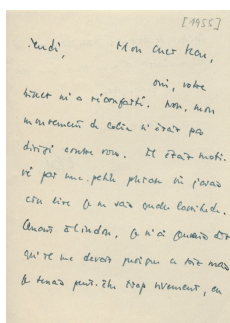 [1955]
Jeudi, Mon cher Jean,
oui, votre
billet m'a réconforté. Non, mon
mouvement de colère n'était pas
dirigé contre vous. Il était moti-
vé par une petite phrase où j'avais
cru lire je ne sais quelle lassitude.
Quant à , je n'ai jamais dit
qu'il me devait puisque à tort mais
je tenais peut-être trop vivement, en